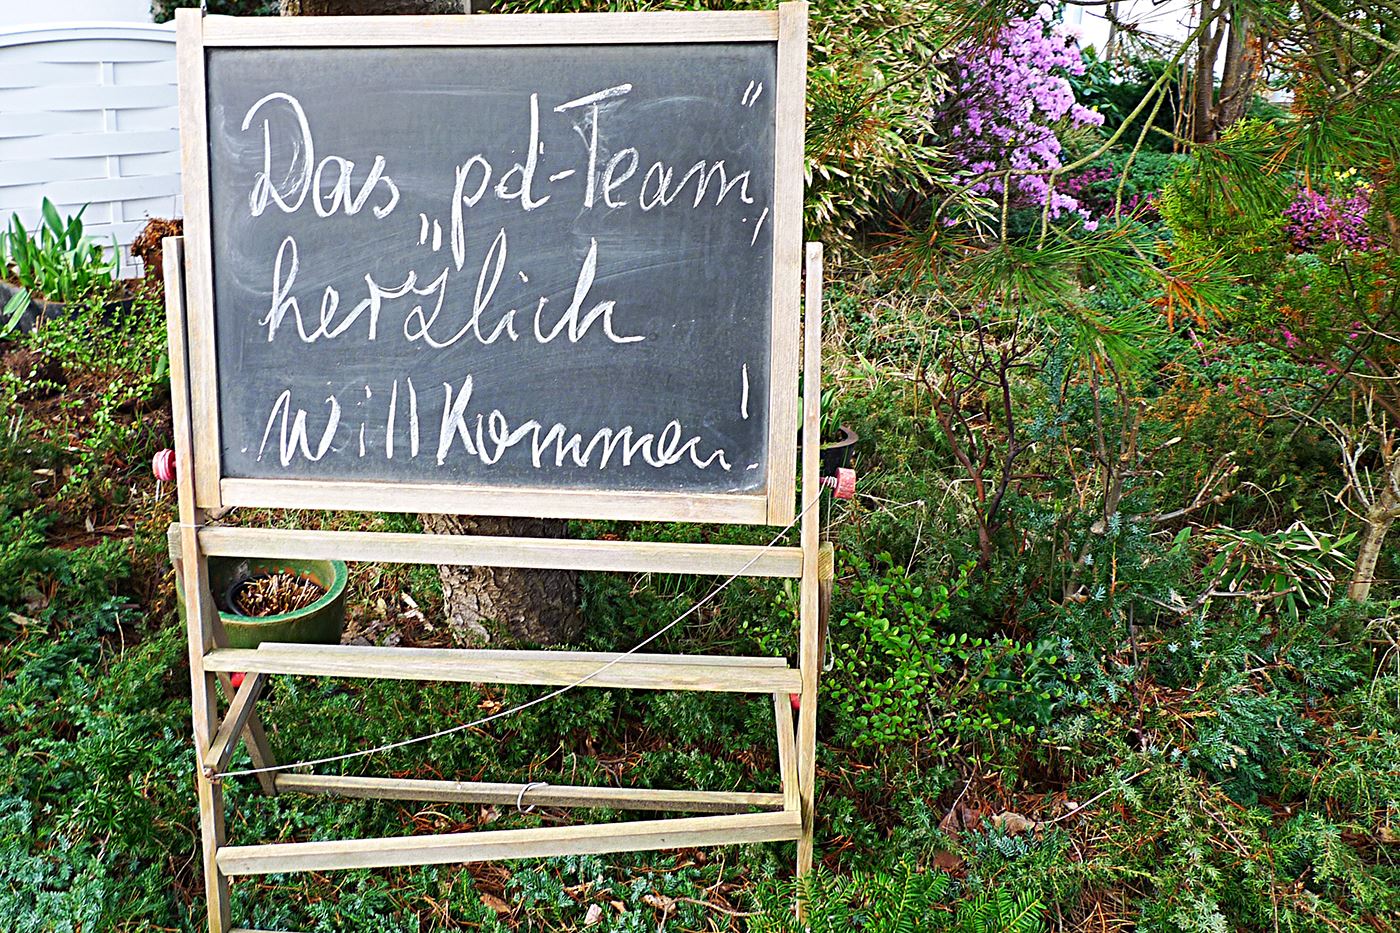 Das „pd-Team",
herzlich
willkommen!